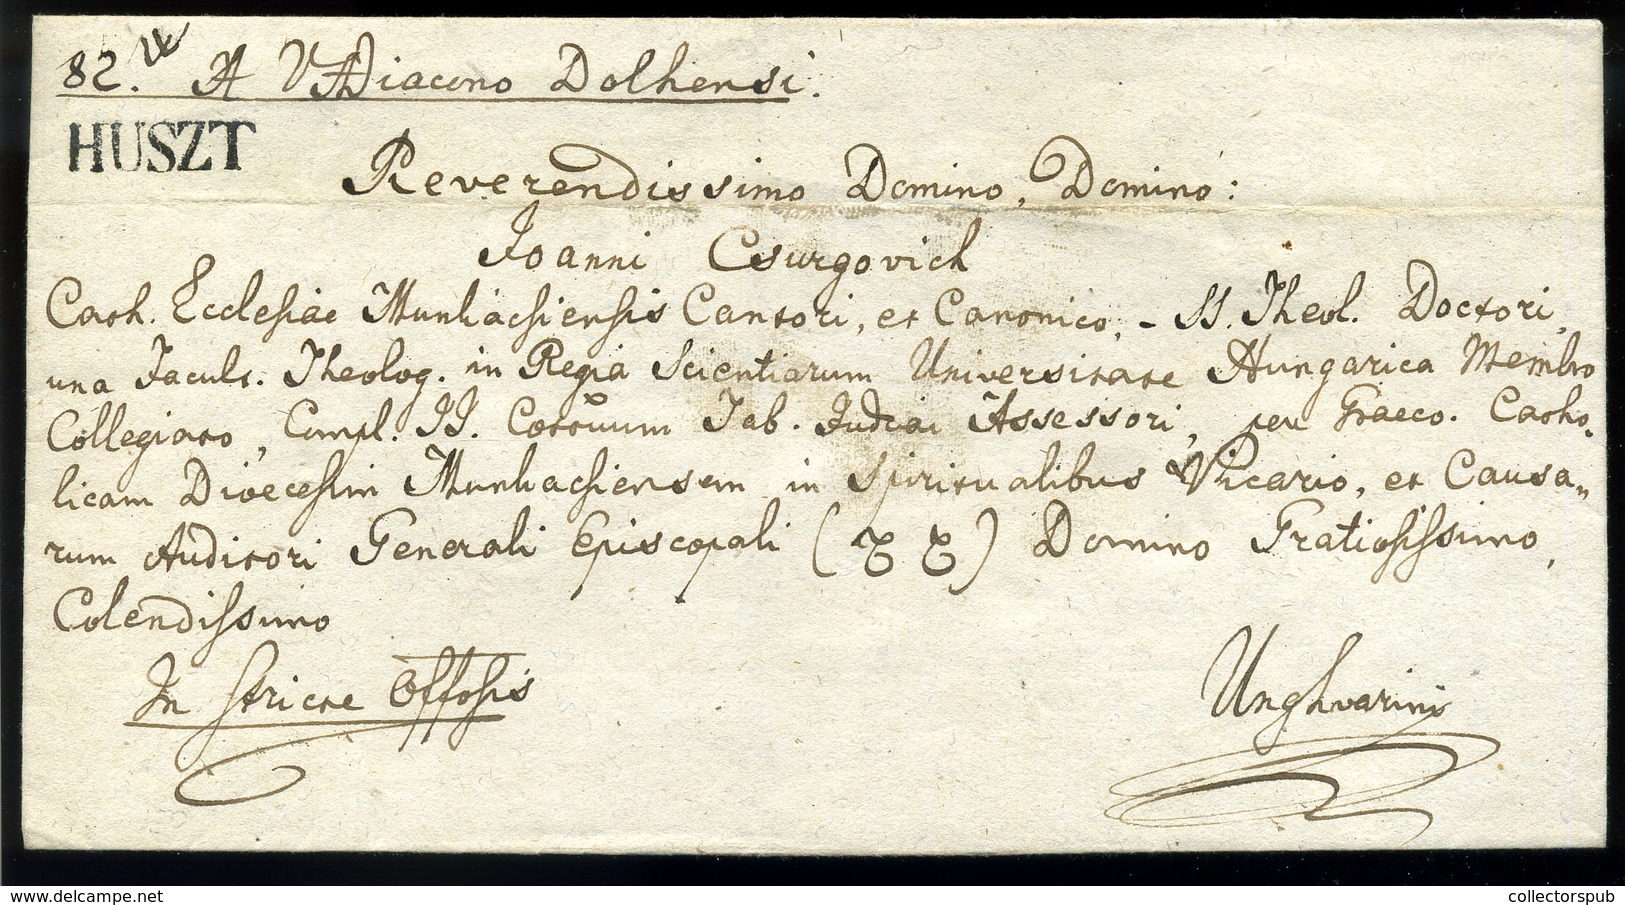 82. A VADiacono Dolhensi.
HUSZT
Reverendissimo Domino, Domino:
Joanni Csurgovich
Cath. Ecclesiae Munkacsiensis Cantori, et Canonico, - SS. Theol. Doctori,
una Facult. Theolog. in Regia Scientiarum Universitate Hungarica Membro
Collegiato, Compl. II. Cottuum Tab. Judiai Assessori, per Graeco. Catho-
licam Dioecesim Munkacsiensem in Spiritualibus Vicario, et Causa-
rum Auditori Generali Episcopali ( ) Domino Gratiosissimo,
Colendissimo
In stricte Offosis
Unghvarini
collectorspub